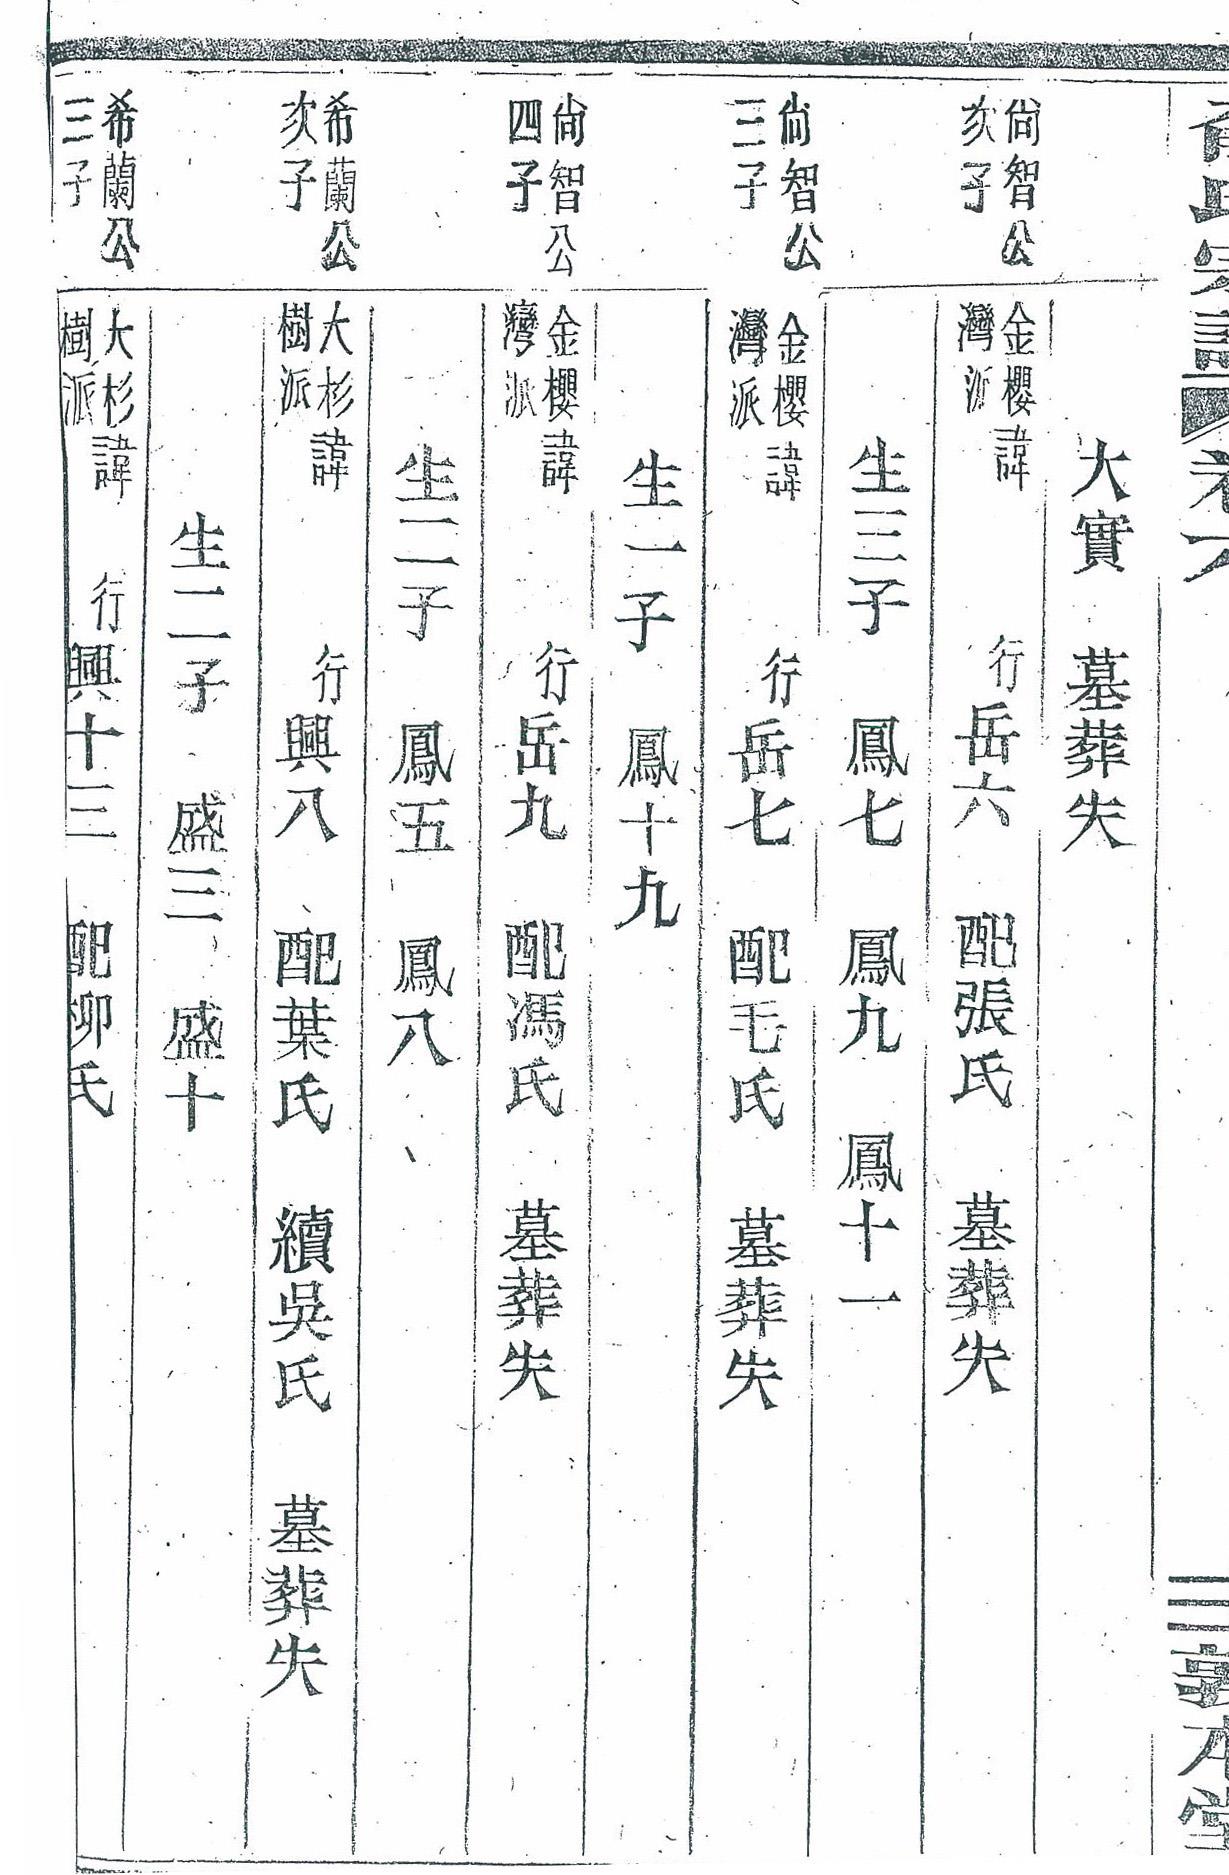 氏宗譜 卷六
三 敦本堂
大實 墓葬失
尙智公
次子
金櫻
灣派
諱 行岳六 配張氏 墓葬失
生三子 鳳七 鳳九 鳳十一
尙智公
三子
金櫻
灣派
諱 行岳七 配毛氏 墓葬失
生一子 鳳十九
尙智公
四子
金櫻
灣派
諱 行岳九 配馮氏 墓葬失
生二子 鳳五 鳳八
希蘭公
次子
大杉
樹派
諱 行興八 配葉氏 續吳氏 墓葬失
生二子 盛三 盛十
希蘭公
三子
大杉
樹派
諱 行興十三 配柳氏